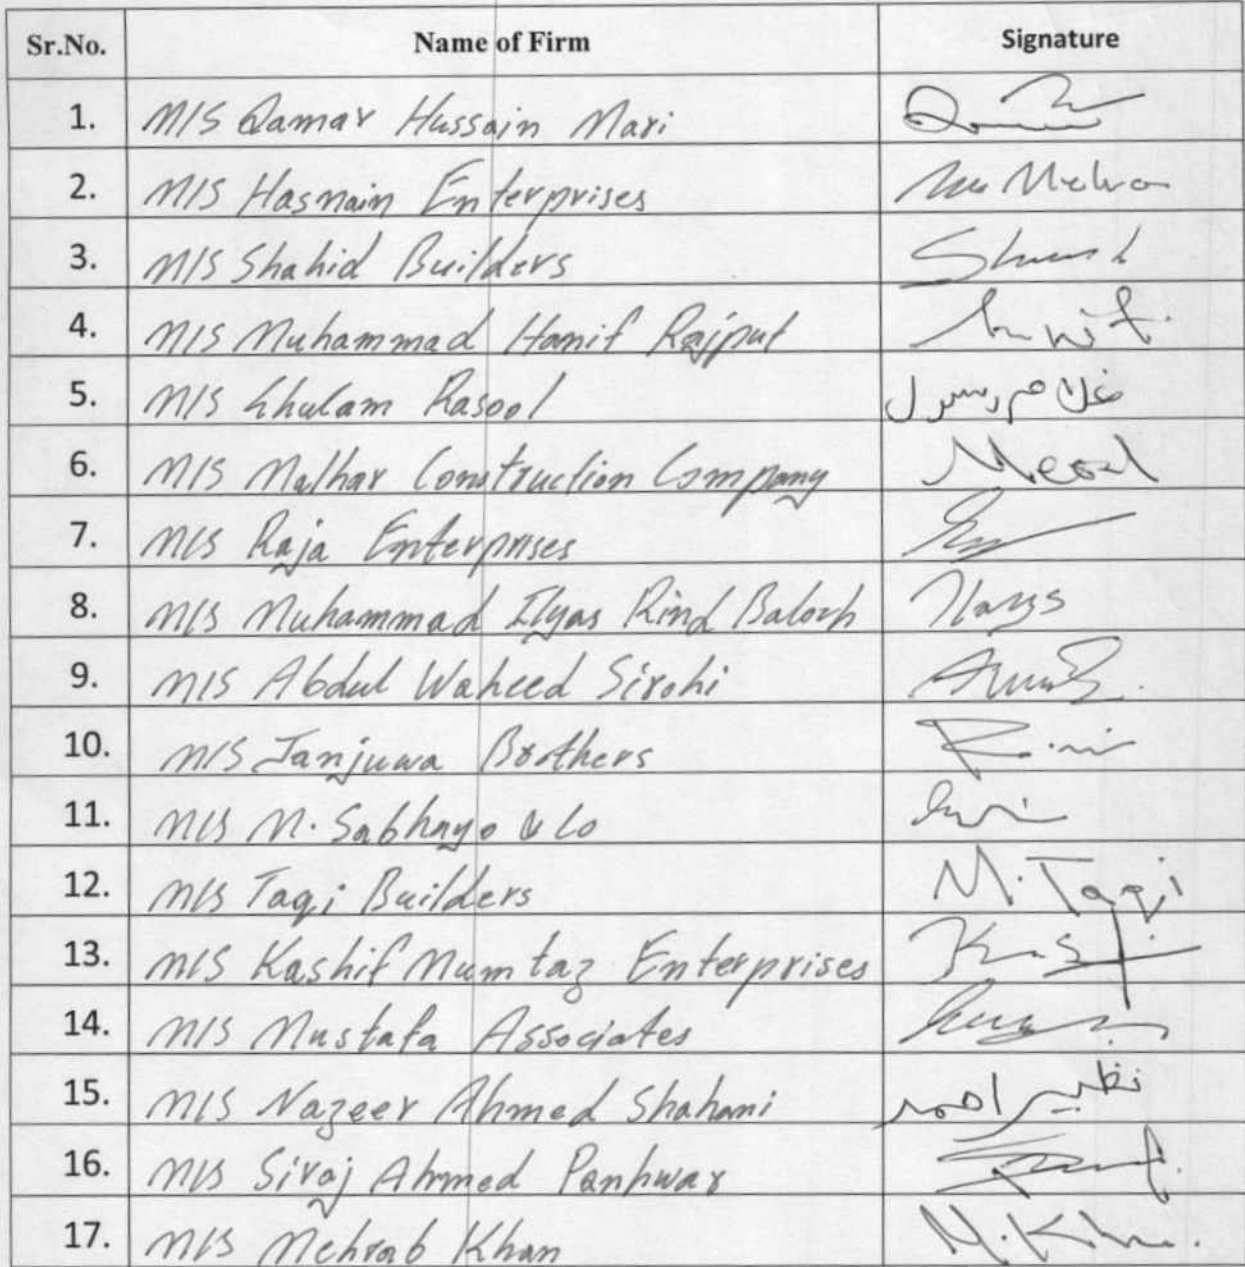 Sr.No. Name of Firm Signature
1. M/S Qamar Hussain Mari
2. M/S Hasnain Enterprises
3. M/S Shahid Builders
4. M/S Muhammad Hanif Rajput
5. M/S Ghulam Rasool غلام رسول
6. M/S Malhar Construction Company
7. M/S Raja Enterprises
8. M/S Muhammad Ilyas Rind Baloch Ilays
9. M/S Abdul Waheed Sirohi
10. M/S Janjuwa Brothers
11. M/S M. Sabhayo & Co
12. M/S Taqi Builders M. Taqi
13. M/S Kashif Mumtaz Enterprises
14. M/S Mustafa Associates
15. M/S Nazeer Ahmed Shahani نظير احمد
16. M/S Siraj Ahmed Panhwar
17. M/S Mehrab Khan M. Khan